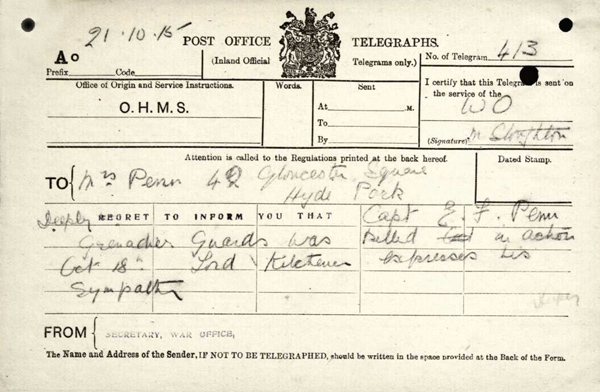 21.10.15
POST OFFICE TELEGRAPHS.
(Inland Official Telegrams only.)
No. of Telegram 413
A o
Prefix Code
Office of Origin and Service Instructions.
Words.
Sent
I certify that this Telegram is sent on
the service of the
WO
O.H.M.S.
At M.
To
By
(Signature)
Attention is called to the Regulations printed at the back hereof.
Dated Stamp.
TO { Mrs Penn 42 Gloucester Square
Hyde Park
Deeply REGRET TO INFORM YOU THAT Capt E. F. Penn
Grenadier Guards was killed in action
Oct 18th Lord Kitchener expresses his
Sympathy
FROM { SECRETARY, WAR OFFICE,
The Name and Address of the Sender, IF NOT TO BE TELEGRAPHED, should be written in the space provided at the Back of the Form.